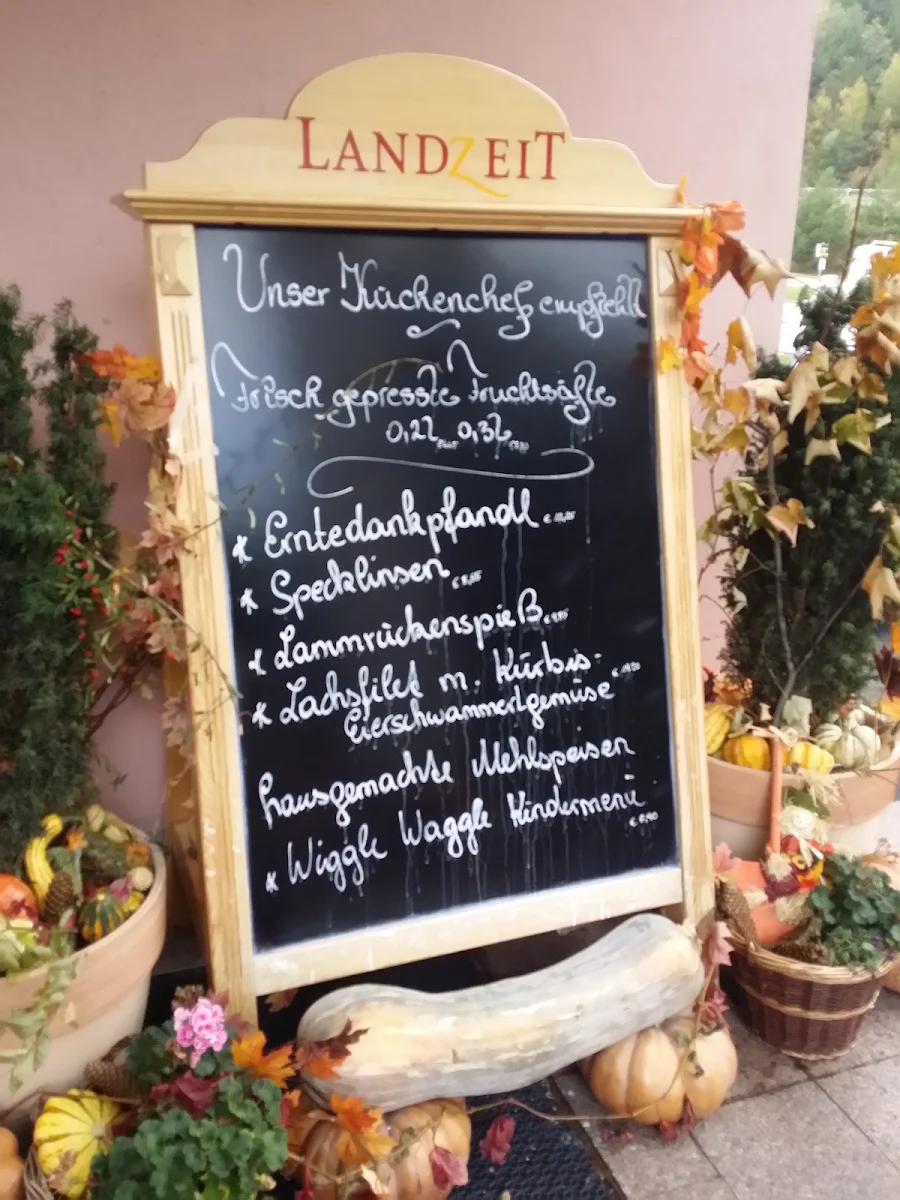 LANDZEIT
Unser Küchenchef empfiehlt
Frisch gepresste Fruchtsäfte
0,2l 0,3l
* Erntedankpfandl
* Specklinsen
* Lammrückenspieß
* Lachsfilet m. Kürbis-
Eierschwammerlgemüse
hausgemachte Mehlspeisen
* Wiggle Waggle Kindermenü